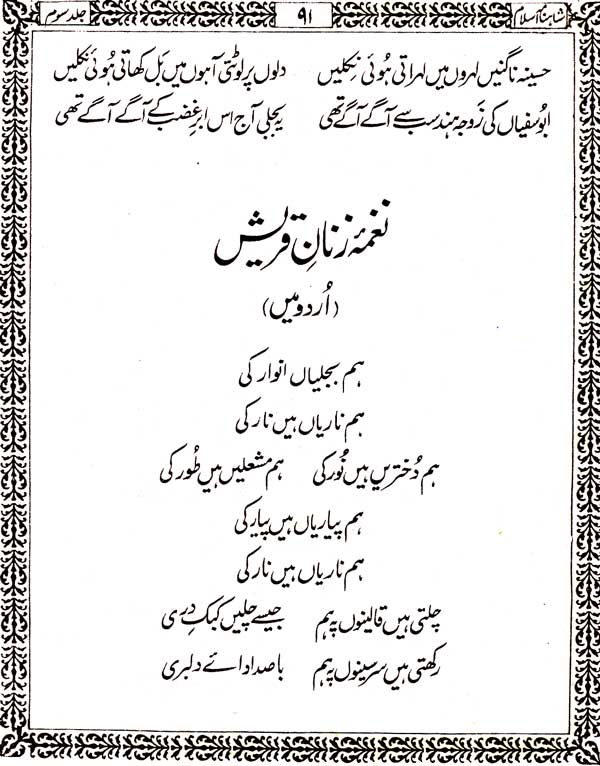 شاہنامہ اسلام ۹۱ جلد سوم
حسینہ ناگنیں لہروں میں لہراتی ہُوئی نِکلیں دلوں پر لَوٹتی آہوں میں بَل کھاتی ہُوئی نکلیں
ابوسُفیاں کی زَوجہ ہند سب سے آگے آگے تھی یہ بجلی آج اس ابرِ غضب کے آگے آگے تھی
نغمۂ زنانِ قریش
(اُردو میں)
ہم بجلیاں انوار کی
ہم ناریاں ہیں نار کی
ہم دُختریں ہیں نُور کی ہم مشعلیں ہیں طُور کی
ہم پیاریاں ہیں پیار کی
ہم ناریاں ہیں نار کی
چلتی ہیں قالینوں پہ ہم جیسے چلیں کبکِ دری
رکھتی ہیں سر سینوں پہ ہم باصد ادائے دلبری